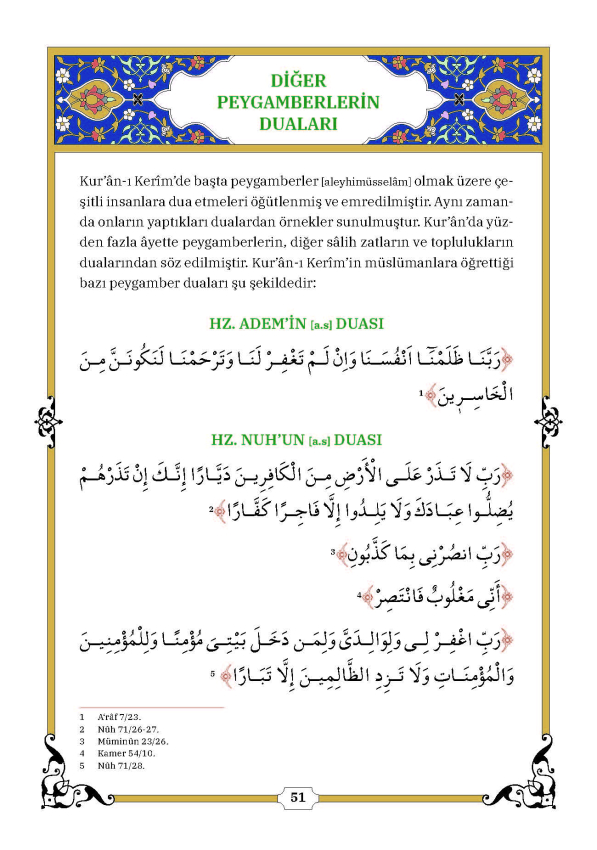 DİĞER
PEYGAMBERLERİN
DUALARI
Kur’ân-ı Kerîm’de başta peygamberler [aleyhimüsselâm] olmak üzere çe-
şitli insanlara dua etmeleri öğütlenmiş ve emredilmiştir. Aynı zaman-
da onların yaptıkları dualardan örnekler sunulmuştur. Kur’ân’da yüz-
den fazla âyette peygamberlerin, diğer sâlih zatların ve toplulukların
dualarından söz edilmiştir. Kur’ân-ı Kerîm’in müslümanlara öğrettiği
bazı peygamber duaları şu şekildedir:
HZ. ADEM’İN [a.s] DUASI
﴿رَبَّنَا ظَلَمْنَٓا اَنْفُسَنَا وَاِنْ لَمْ تَغْفِرْ لَنَا وَتَرْحَمْنَا لَنَكُونَنَّ مِنَ
الْخَاسِرٖينَ﴾ 1
HZ. NUH’UN [a.s] DUASI
﴿رَبِّ لَا تَذَرْ عَلَى الْأَرْضِ مِنَ الْكَافِرِينَ دَيَّارًا إِنَّكَ إِنْ تَذَرْهُمْ
يُضِلُّوا عِبَادَكَ وَلَا يَلِدُوا إِلَّا فَاجِرًا كَفَّارًا﴾ 2
﴿رَبِّ انصُرْنِى بِمَا كَذَّبُونِ﴾ 3
﴿أَنِّى مَغْلُوبٌ فَانْتَصِرْ﴾ 4
﴿رَبِّ اغْفِرْ لِى وَلِوَالِدَىَّ وَلِمَن دَخَلَ بَيْتِىَ مُؤْمِنًا وَلِلْمُؤْمِنِينَ
وَالْمُؤْمِنَاتِ وَلَا تَزِدِ الظَّالِمِينَ إِلَّا تَبَارًا﴾ 5
1 A‘râf 7/23.
2 Nûh 71/26-27.
3 Müminûn 23/26.
4 Kamer 54/10.
5 Nûh 71/28.
51